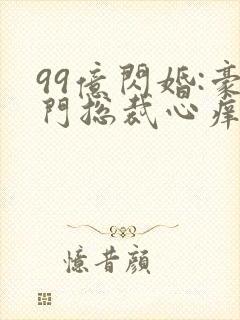 99億閃婚:豪
門総裁心痒
憶昔顔